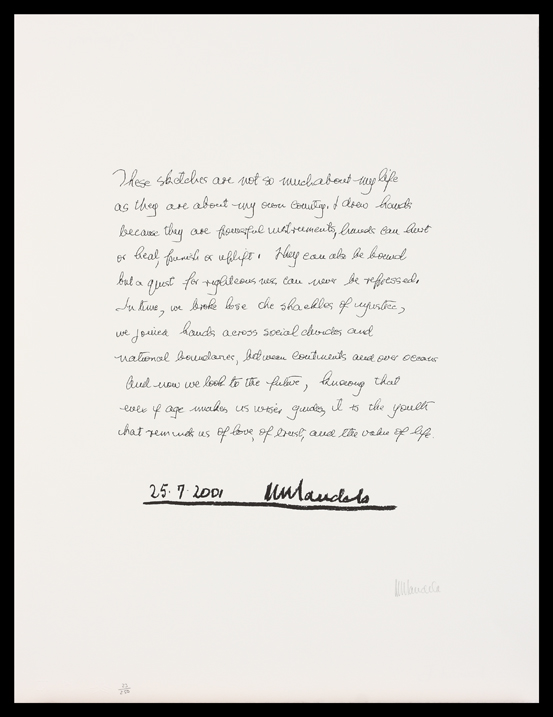 These sketches are not so much about my life
as they are about my own country. I drew hands
because they are powerful instruments, hands can hurt
or heal, punish or uplift. They can also be bound
but a quest for righteousness can never be repressed.
In time, we broke lose the shackles of injustice,
we joined hands across social divides and
national boundaries, between continents and over oceans
And now we look to the future, knowing that
even if age makes us wiser guides, it is the youth
that reminds us of love, of trust, and the value of life.
25·7·2001 NMandela
NMandela